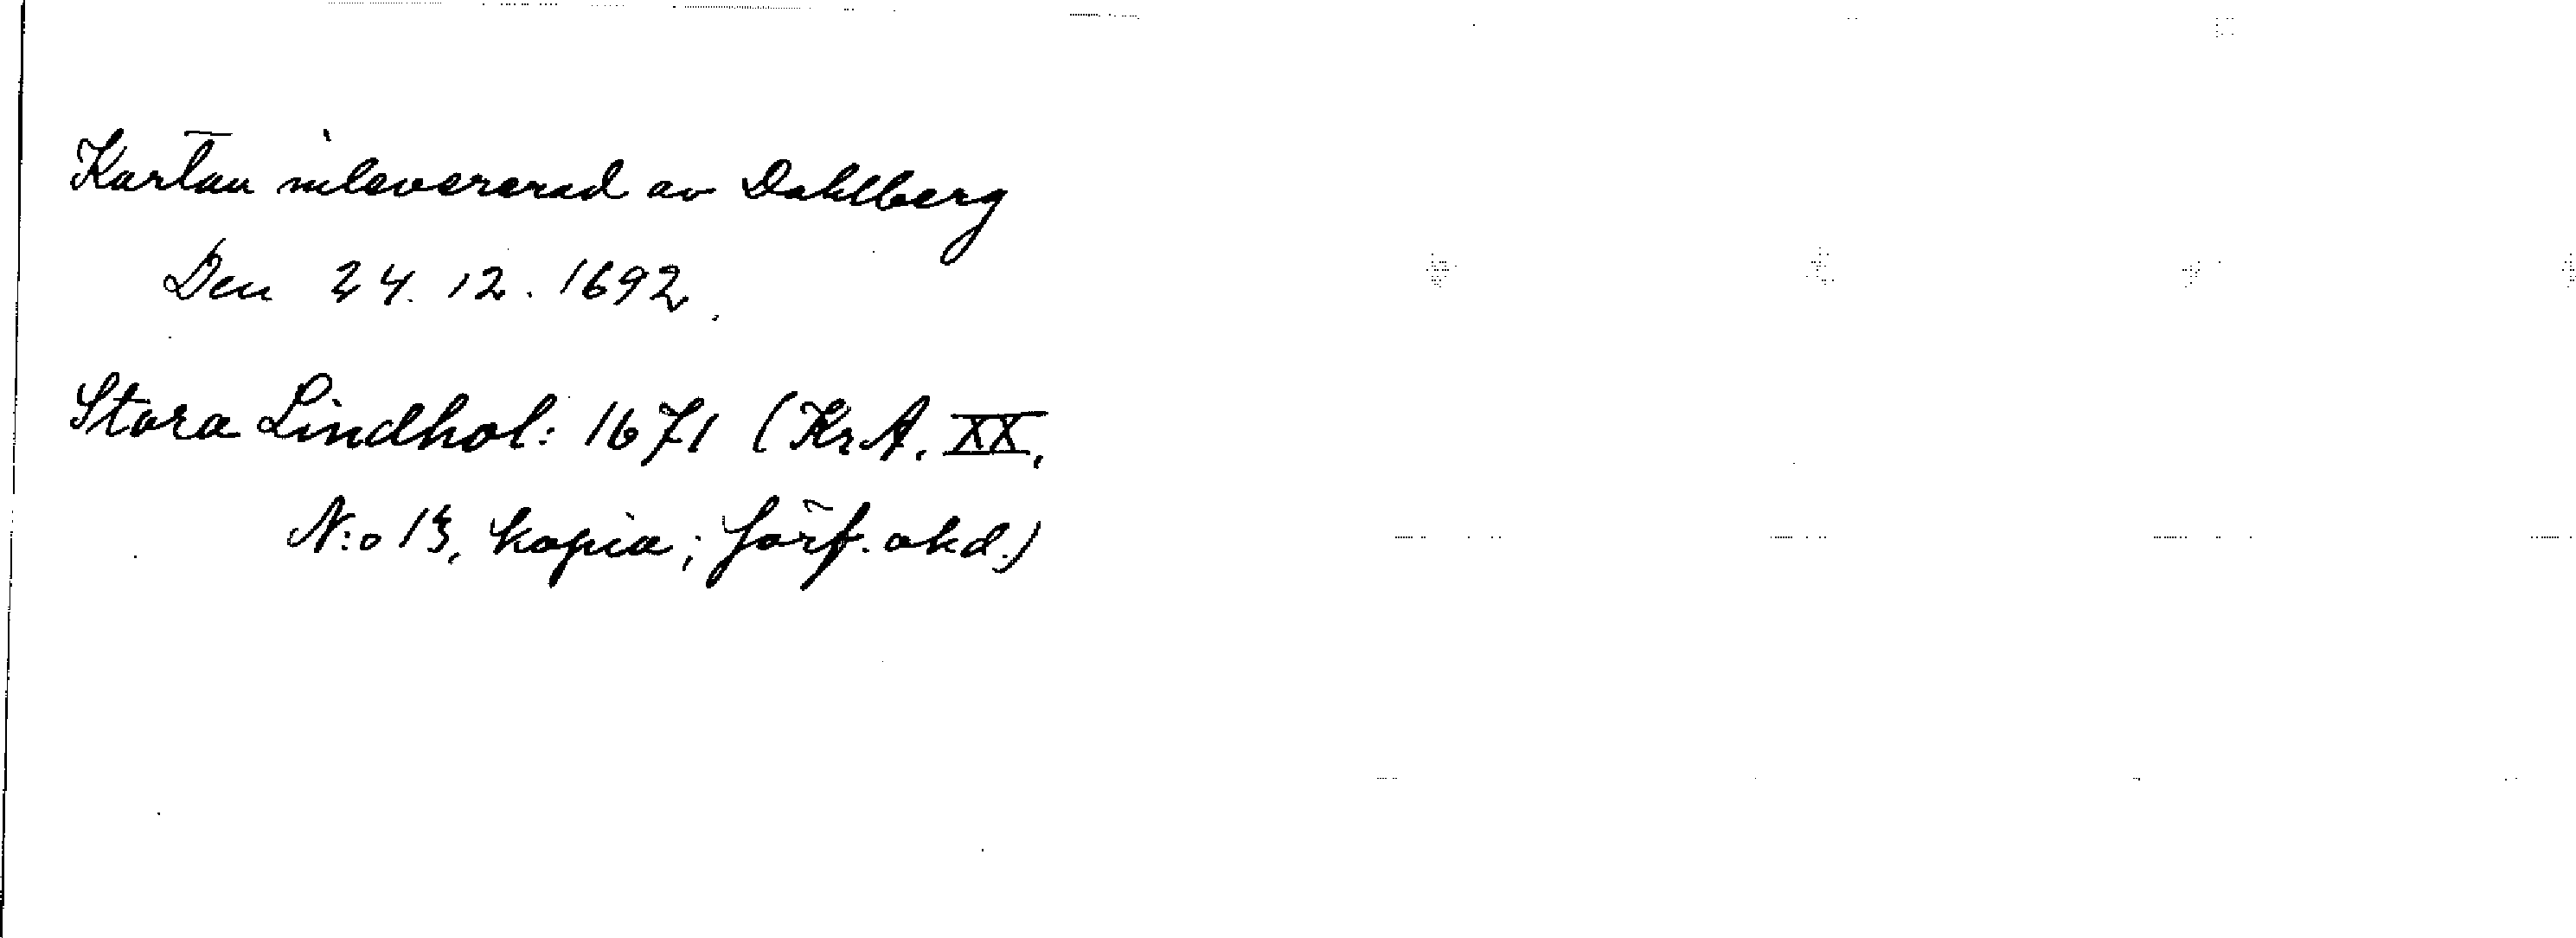 Kartan inlevererad av Dahlberg
Den 24.12.1692.
Stora Lindhol: 1671 (KrA. XX.
N:o 13, kopia; förf. okd.)